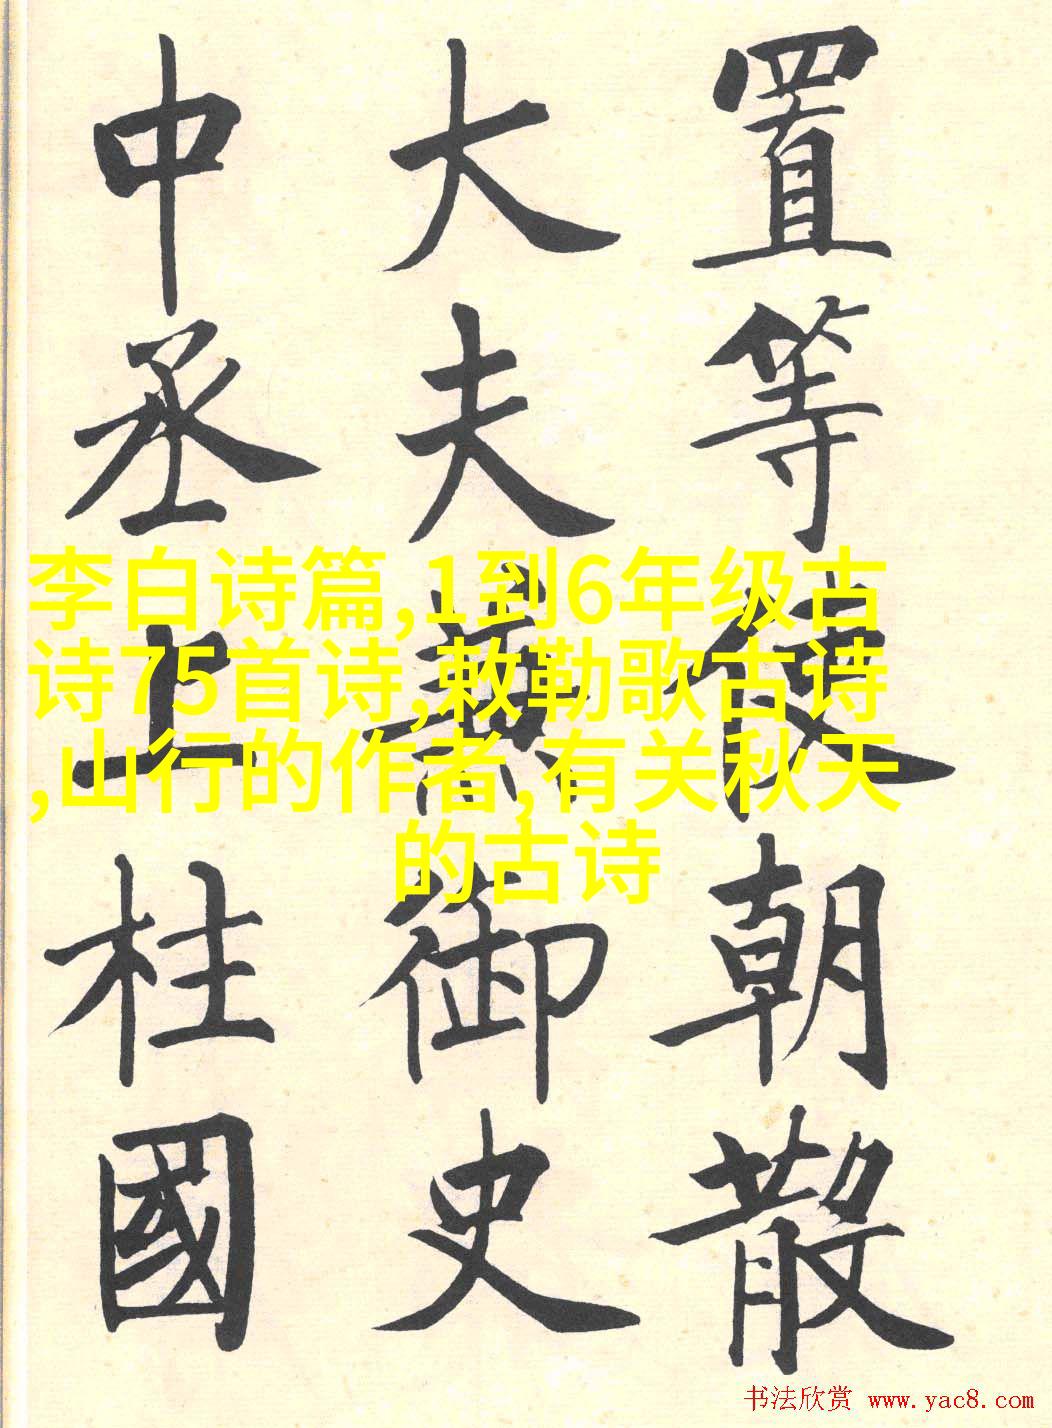 置等使朝散
大夫兼御史
中丞上柱國
李白诗篇,1到6年级古
诗75首诗,敕勒歌古诗
,山行的作者,有关秋天
的古诗
书法欣赏 www.yac8.com